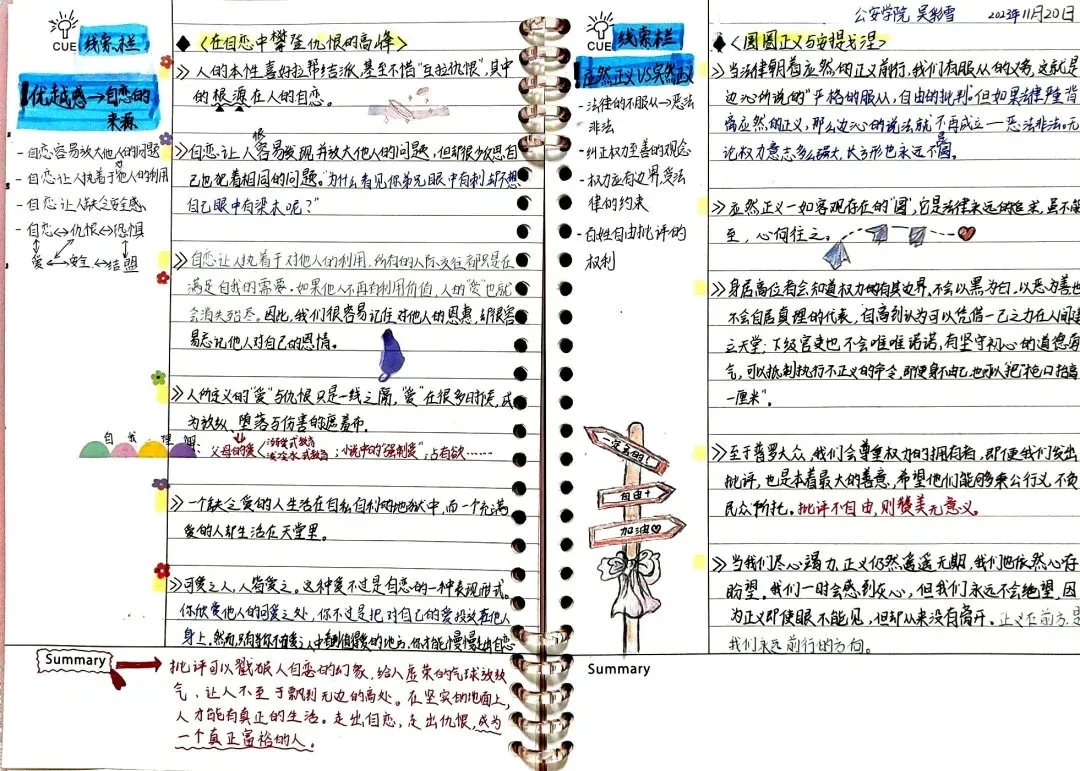 公安学院 吴彩雪 2023年11月20日
CUE 线索栏
优越感→自恋的
来源
- 自恋容易放大他人的问题
- 自恋让人执着于他人的利用
- 自恋让人缺乏安全感
- 自恋↔仇恨↔恐惧
爱↔安全↔结盟
◆〈在自恋中攀登仇恨的高峰〉
》人的本性喜好拉帮结派,甚至不惜"互拉仇恨",其中
的根源在人的自恋。
》自恋让人很容易发现并放大他人的问题,但却很少反思自
己也犯着相同的问题。"为什么看见你弟兄眼中有刺,却不想
自己眼中有梁木呢?"
》自恋让人执着于对他人的利用,所有的人际交往都只是在
满足自我的需要。如果他人不再有利用价值,人的"爱"也就
会消失殆尽。因此,我们很容易记住对他人的恩惠,却很容
易忘记他人对自己的恩情。
》人所定义的"爱"与仇恨只是一线之隔,"爱"在很多时候,成
为放纵、堕落与伤害的遮羞布。
自我理解:
父母的爱〈溺爱式教育
泼冷水式教育;小说中的"强制爱";占有欲……
》一个缺乏爱的人生活在自私自利的地狱中,而一个充满
爱的人却生活在天堂里。
》可爱之人,人皆爱之。这种爱不过是自恋的一种表现形式。
你欣赏他人的可爱之处,你不过是把对自己的爱投放在他人
身上。然而,只有当你在不可爱之人中看到值得爱的地方,你才能慢慢走出自恋
Summary
批评可以戳破人自恋的幻象,给人虚荣的气球放放
气,让人不至于飘到无边的高处。在坚实的地面上,
人才能有真正的生活。走出自恋,走出仇恨,成为
一个真正富裕的人。
CUE 线索栏
应然正义VS实然正义
- 法律的不服从→恶法
非法
- 纠正权力至善的观念
- 权力应有边界,受法
律的约束
- 百姓自由批评的
权利
自由+
加油♡
◆〈圆圈正义与安提戈涅〉
》当法律朝着应然的正义前行,我们有服从的义务,这就是
边沁所说的"严格的服从,自由的批判"。但如果法律背
离应然的正义,那么边沁的说法就不再成立—恶法非法。无
论权力意志多么强大,长方形也永远不是圆。
》应然正义一如客观存在的"圆",它是法律永远的追求,虽不能
至,心向往之。
》身居高位者会知道权力的有其边界,不会以黑为白,以恶为善也
不会自居真理的代表,自高到认为可以凭借一己之力在人间建
立天堂;下级官吏也不会唯唯诺诺,有坚守初心的道德勇
气,可以抵制执行不正义的命令,即便身不由己也可以"把枪口抬高
一厘米"。
》至于普罗大众,我们会尊重权力的拥有者,即便我们发出
批评,也是本着最大的善意,希望他们能够秉公行义,不负
民众所托。批评不自由,则赞美无意义。
》当我们尽心竭力,正义仍然遥遥无期,我们也依然心存
盼望。我们一时会感到灰心,但我们永远不会绝望,因
为正义即使眼不能见,但却从来没有离开。正义在前方是
我们永远前行的方向。
Summary